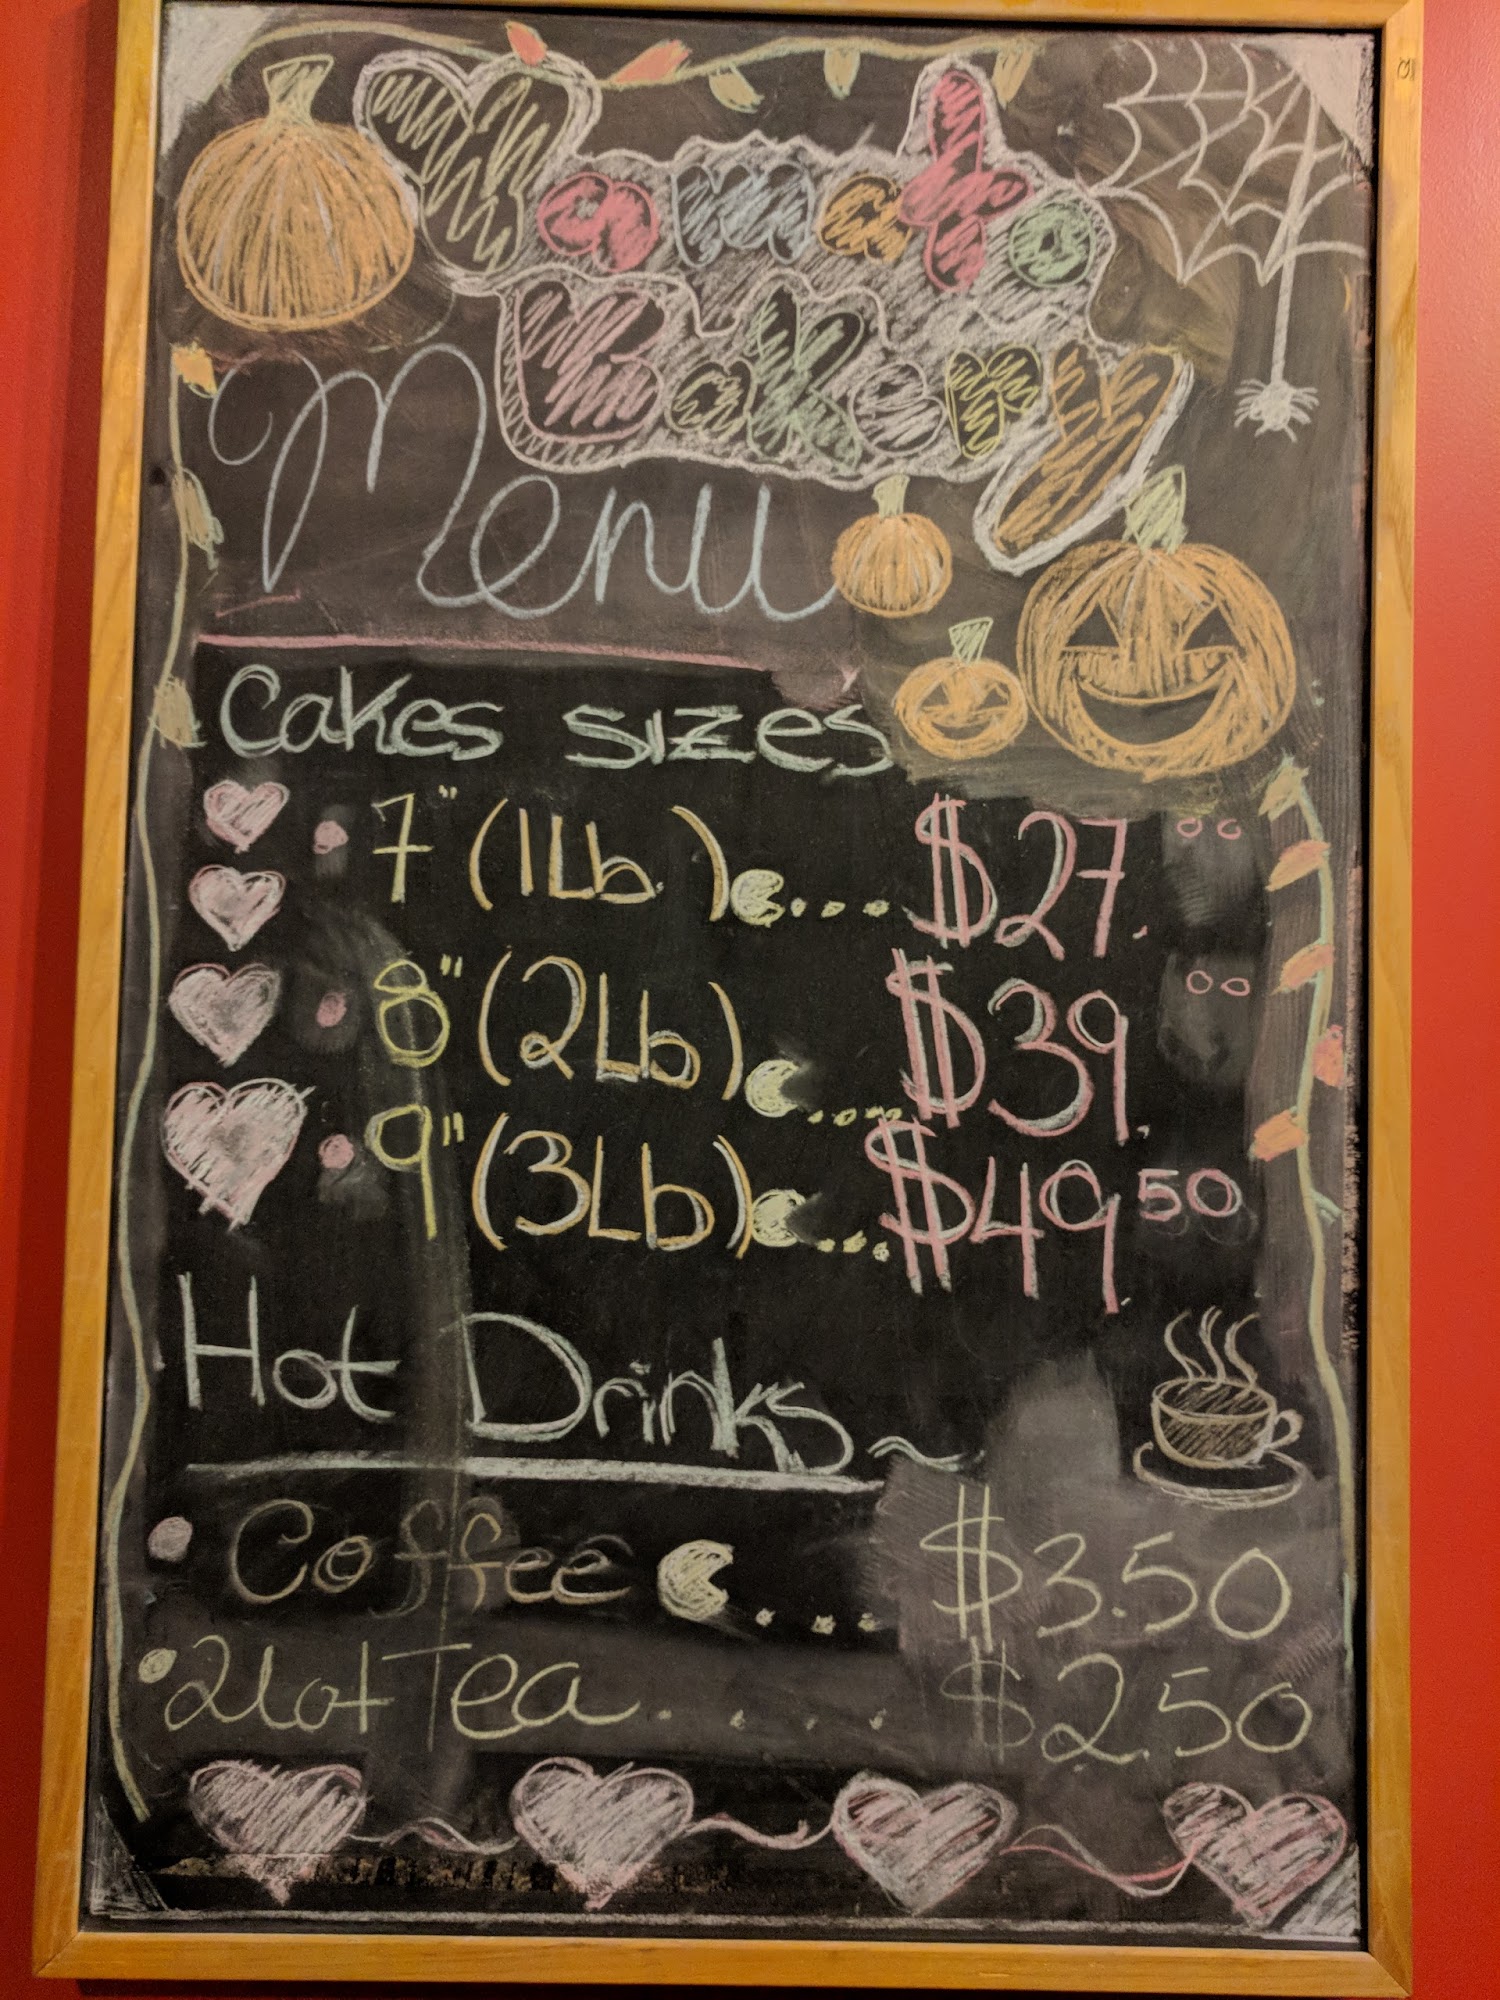 Yamato
Bakery
Menu
Cakes sizes
• 7" (1Lb.) ... $27.00
• 8" (2Lb) ... $39.00
• 9" (3Lb) ... $49.50
Hot Drinks ~
• Coffee .... $3.50
• Hot Tea ..... $2.50